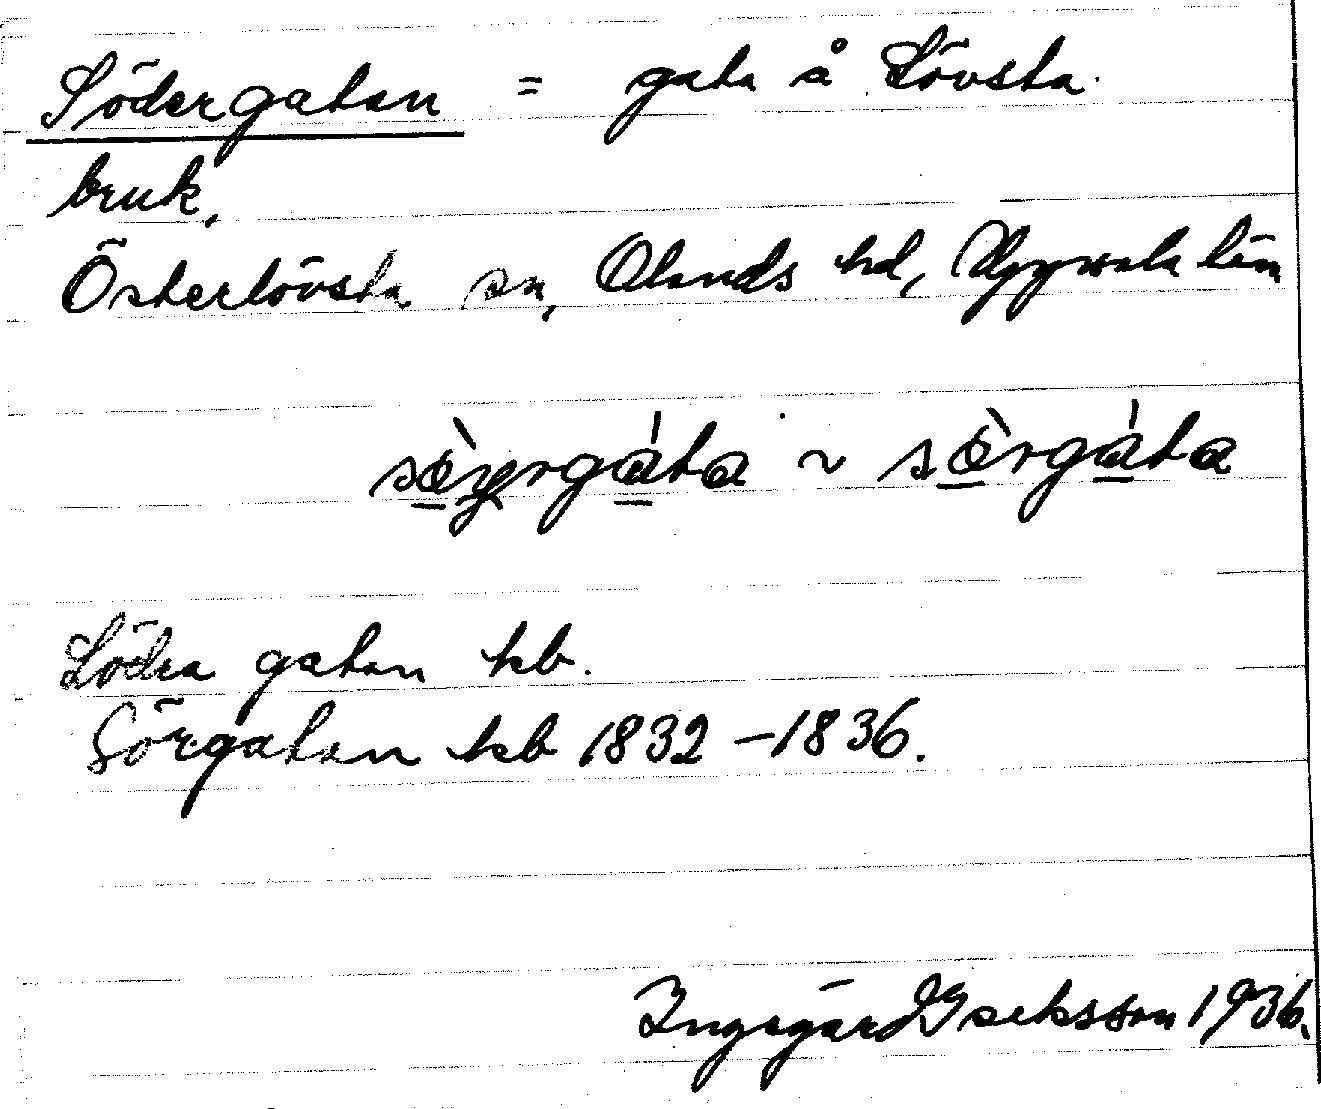 Södergatan = gata å Lövsta
bruk.
Österlövsta sn, Olands hd, Uppsala län
Södra gatan kb.
Sörgatan kb 1832 - 1836.
Ingegärd Isaksson 1936.